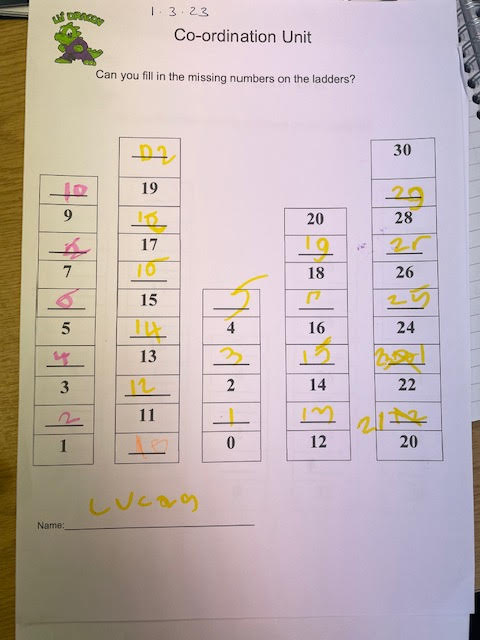 1.3.23
LIL' DRAGON
Co-ordination Unit
Can you fill in the missing numbers on the ladders?
10
9
7
6
5
4
3
2
1
02
19
18
17
16
15
14
13
12
11
10
5
4
3
2
1
0
20
19
18
16
15
14
13
12
30
29
28
26
25
24
22
21
20
Lucas
Name: